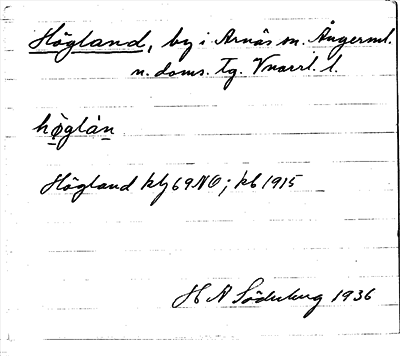 Högland, by i Arnäs sn. Ångerml.
n. doms. tg. Vnorrl. l.
hø̀glàn
Högland kbl 69 NO; kb 1915
H A Söderberg 1936